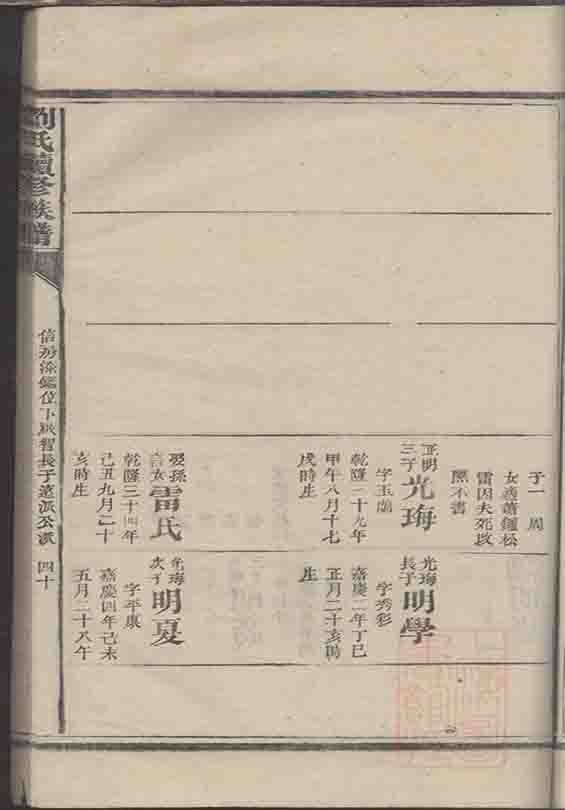 子一 周
女適蕭鍾松
雷因夫死改
醮不書
正明
三子
光珻
字玉蘭
乾隆三十九年
甲午八月十七
戌時生
娶孫
女
雷氏
乾隆三十四年
己丑九月二十
亥時生
光珻
長子
明學
字秀彩
嘉慶二年丁巳
正月二十亥時
生
光珻
次子
明夏
字平康
嘉慶四年己未
五月二十八午
劉氏續修族譜
信房 位下 智長子 派公派 四十